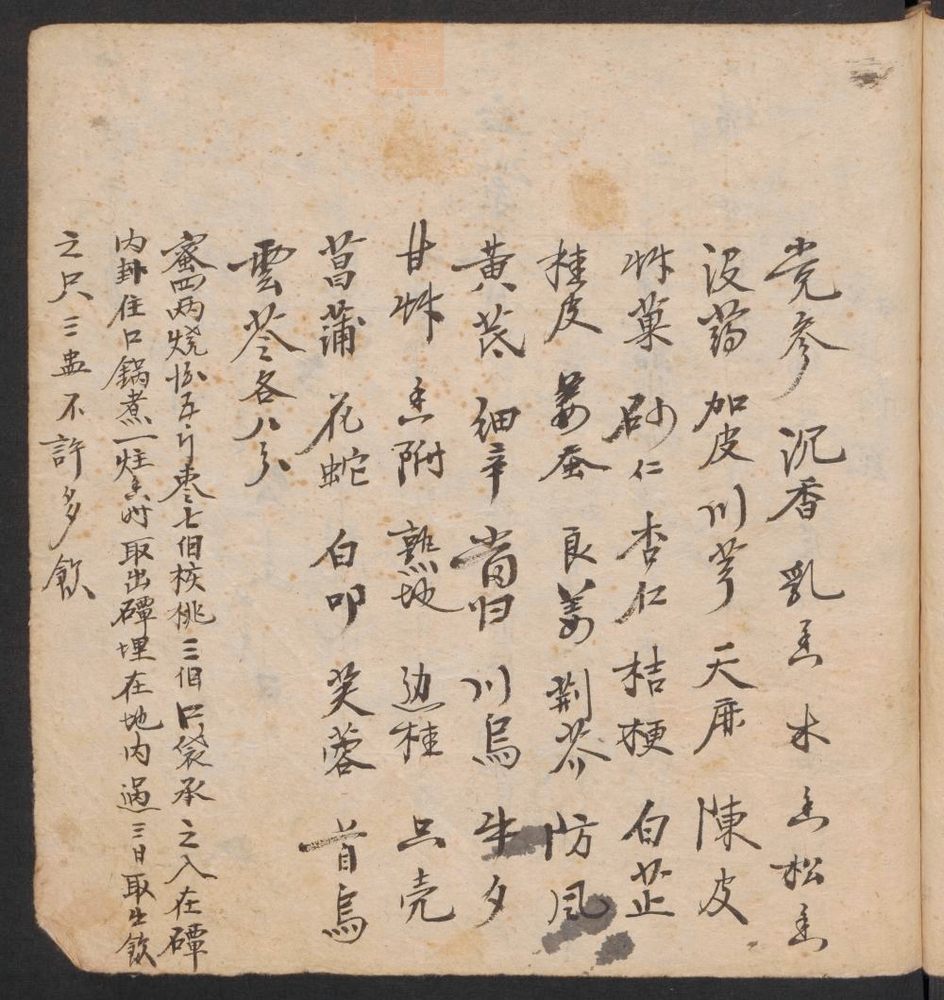 党参 沉香 乳香 木香 松香
没药 加皮 川芎 天麻 陳皮
艸菓 砂仁 杏仁 桔梗 白芷
桂皮 姜蚕 良姜 荆芥 防风
黄芪 细辛 當归 川烏 牛夕
甘艸 香附 熟地 边桂 只壳
菖蒲 花蛇 白叩 芙蓉 首烏
雲苓各八分
蜜四两烧酒五斤枣七個核桃三個口袋承之入在礶
内封住口锅煮一炷香时取出礶埋在地内過三日取出飲
之只三盅不許多飲